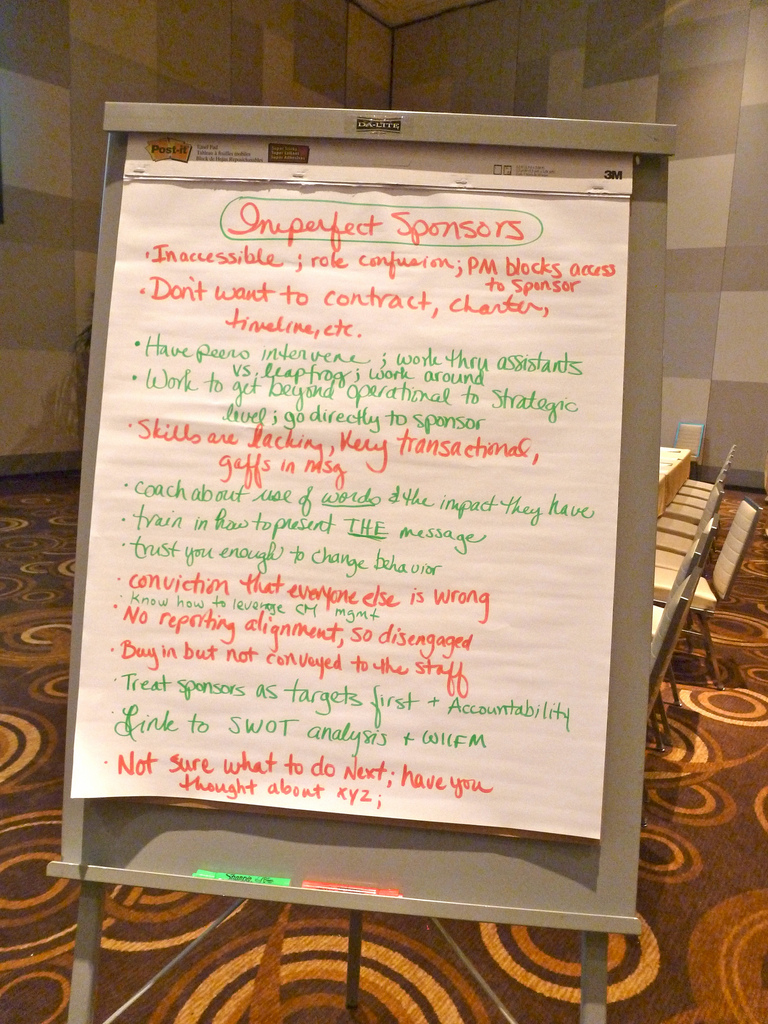 DA-LITE
Post-it
3M
Imperfect Sponsors
• Inaccessible ; role confusion; PM blocks access
to sponsor
• Don't want to contract, charter,
timeline, etc.
• Have peers intervene ; work thru assistants
vs. leapfrog ; work around
• Work to get beyond operational to strategic
level ; go directly to sponsor
• Skills are lacking, Very transactional,
gaffs in msg
• coach about use of words & the impact they have
• train in how to present THE message
• trust you enough to change behavior
• conviction that everyone else is wrong
• Know how to leverage CM mgmt
• No reporting alignment, so disengaged
• Buy in but not conveyed to the staff
• Treat sponsors as targets first + Accountability
• Link to SWOT analysis + WIIFM
• Not sure what to do Next; have you
thought about xyz;